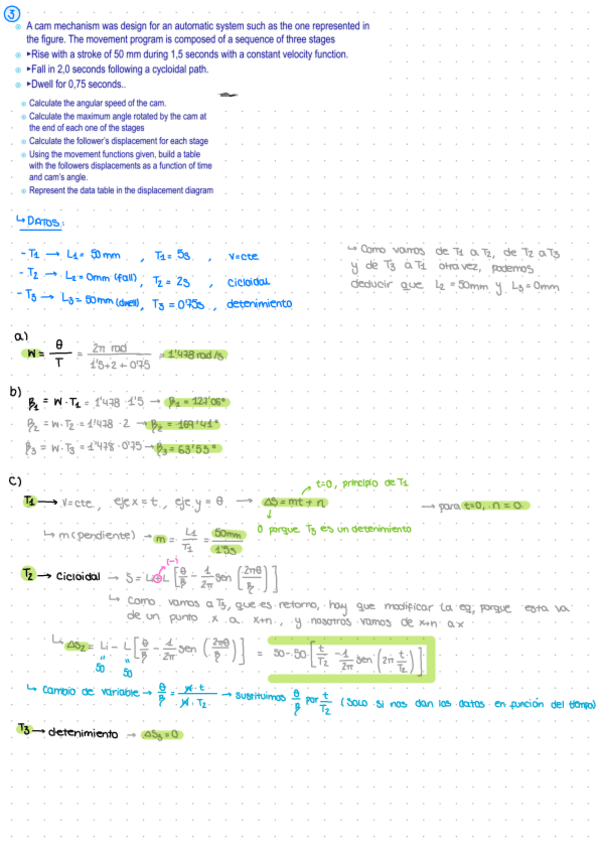 3
A cam mechanism was design for an automatic system such as the one represented in
the figure. The movement program is composed of a sequence of three stages
▸Rise with a stroke of 50 mm during 1,5 seconds with a constant velocity function.
▸Fall in 2,0 seconds following a cycloidal path.
▸Dwell for 0,75 seconds..
Calculate the angular speed of the cam.
Calculate the maximum angle rotated by the cam at
the end of each one of the stages
Calculate the follower's displacement for each stage
Using the movement functions given, build a table
with the followers displacements as a function of time
and cam's angle.
Represent the data table in the displacement diagram
↳ DATOS:
- T1 → L1 = 50mm , T1 = 5s , v=cte
- T2 → L2 = 0mm (fall), T2 = 2s , cicloidal
- T3 → L3 = 50mm (dwell), T3 = 0'75s , detenimiento
↳ Como vamos de T1 a T2, de T2 a T3
y de T3 a T1 otra vez, podemos
deducir que L2 = 50mm y L3 = 0mm
a)
W = θ/T = 2π rad / 1'5+2+0'75 = 1'478 rad/s
b)
β1 = W·T1 = 1'478·1'5 → β1 = 127'06°
β2 = W·T2 = 1'478·2 → β2 = 169'41°
β3 = W·T3 = 1'478·0'75 → β3 = 63'53°
c)
t=0, principio de T1
T1 → v=cte, eje x = t, eje y = θ → ΔS = mt + n → para t=0, n=0
0 porque T3 es un detenimiento
↳ m (pendiente) → m = L1/T1 = 50mm/1'5s
(-)
T2 → Cicloidal → S = Li + L [θ/β - 1/2π sen (2πθ/β)]
↳ Como vamos a T3, que es retorno, hay que modificar la eq, porque esta va
de un punto x a x+n, y nosotros vamos de x+n a x
↳ ΔS2 = Li - L [θ/β - 1/2π sen (2πθ/β)] = 50 - 50 [t/T2 - 1/2π sen (2π t/T2)]
50 50
↳ Cambio de variable → θ/β = W·t/W·T2 → sustituimos θ/β por t/T2 (Solo si nos dan los datos en función del tiempo)
T3 → detenimiento → ΔS3 = 0